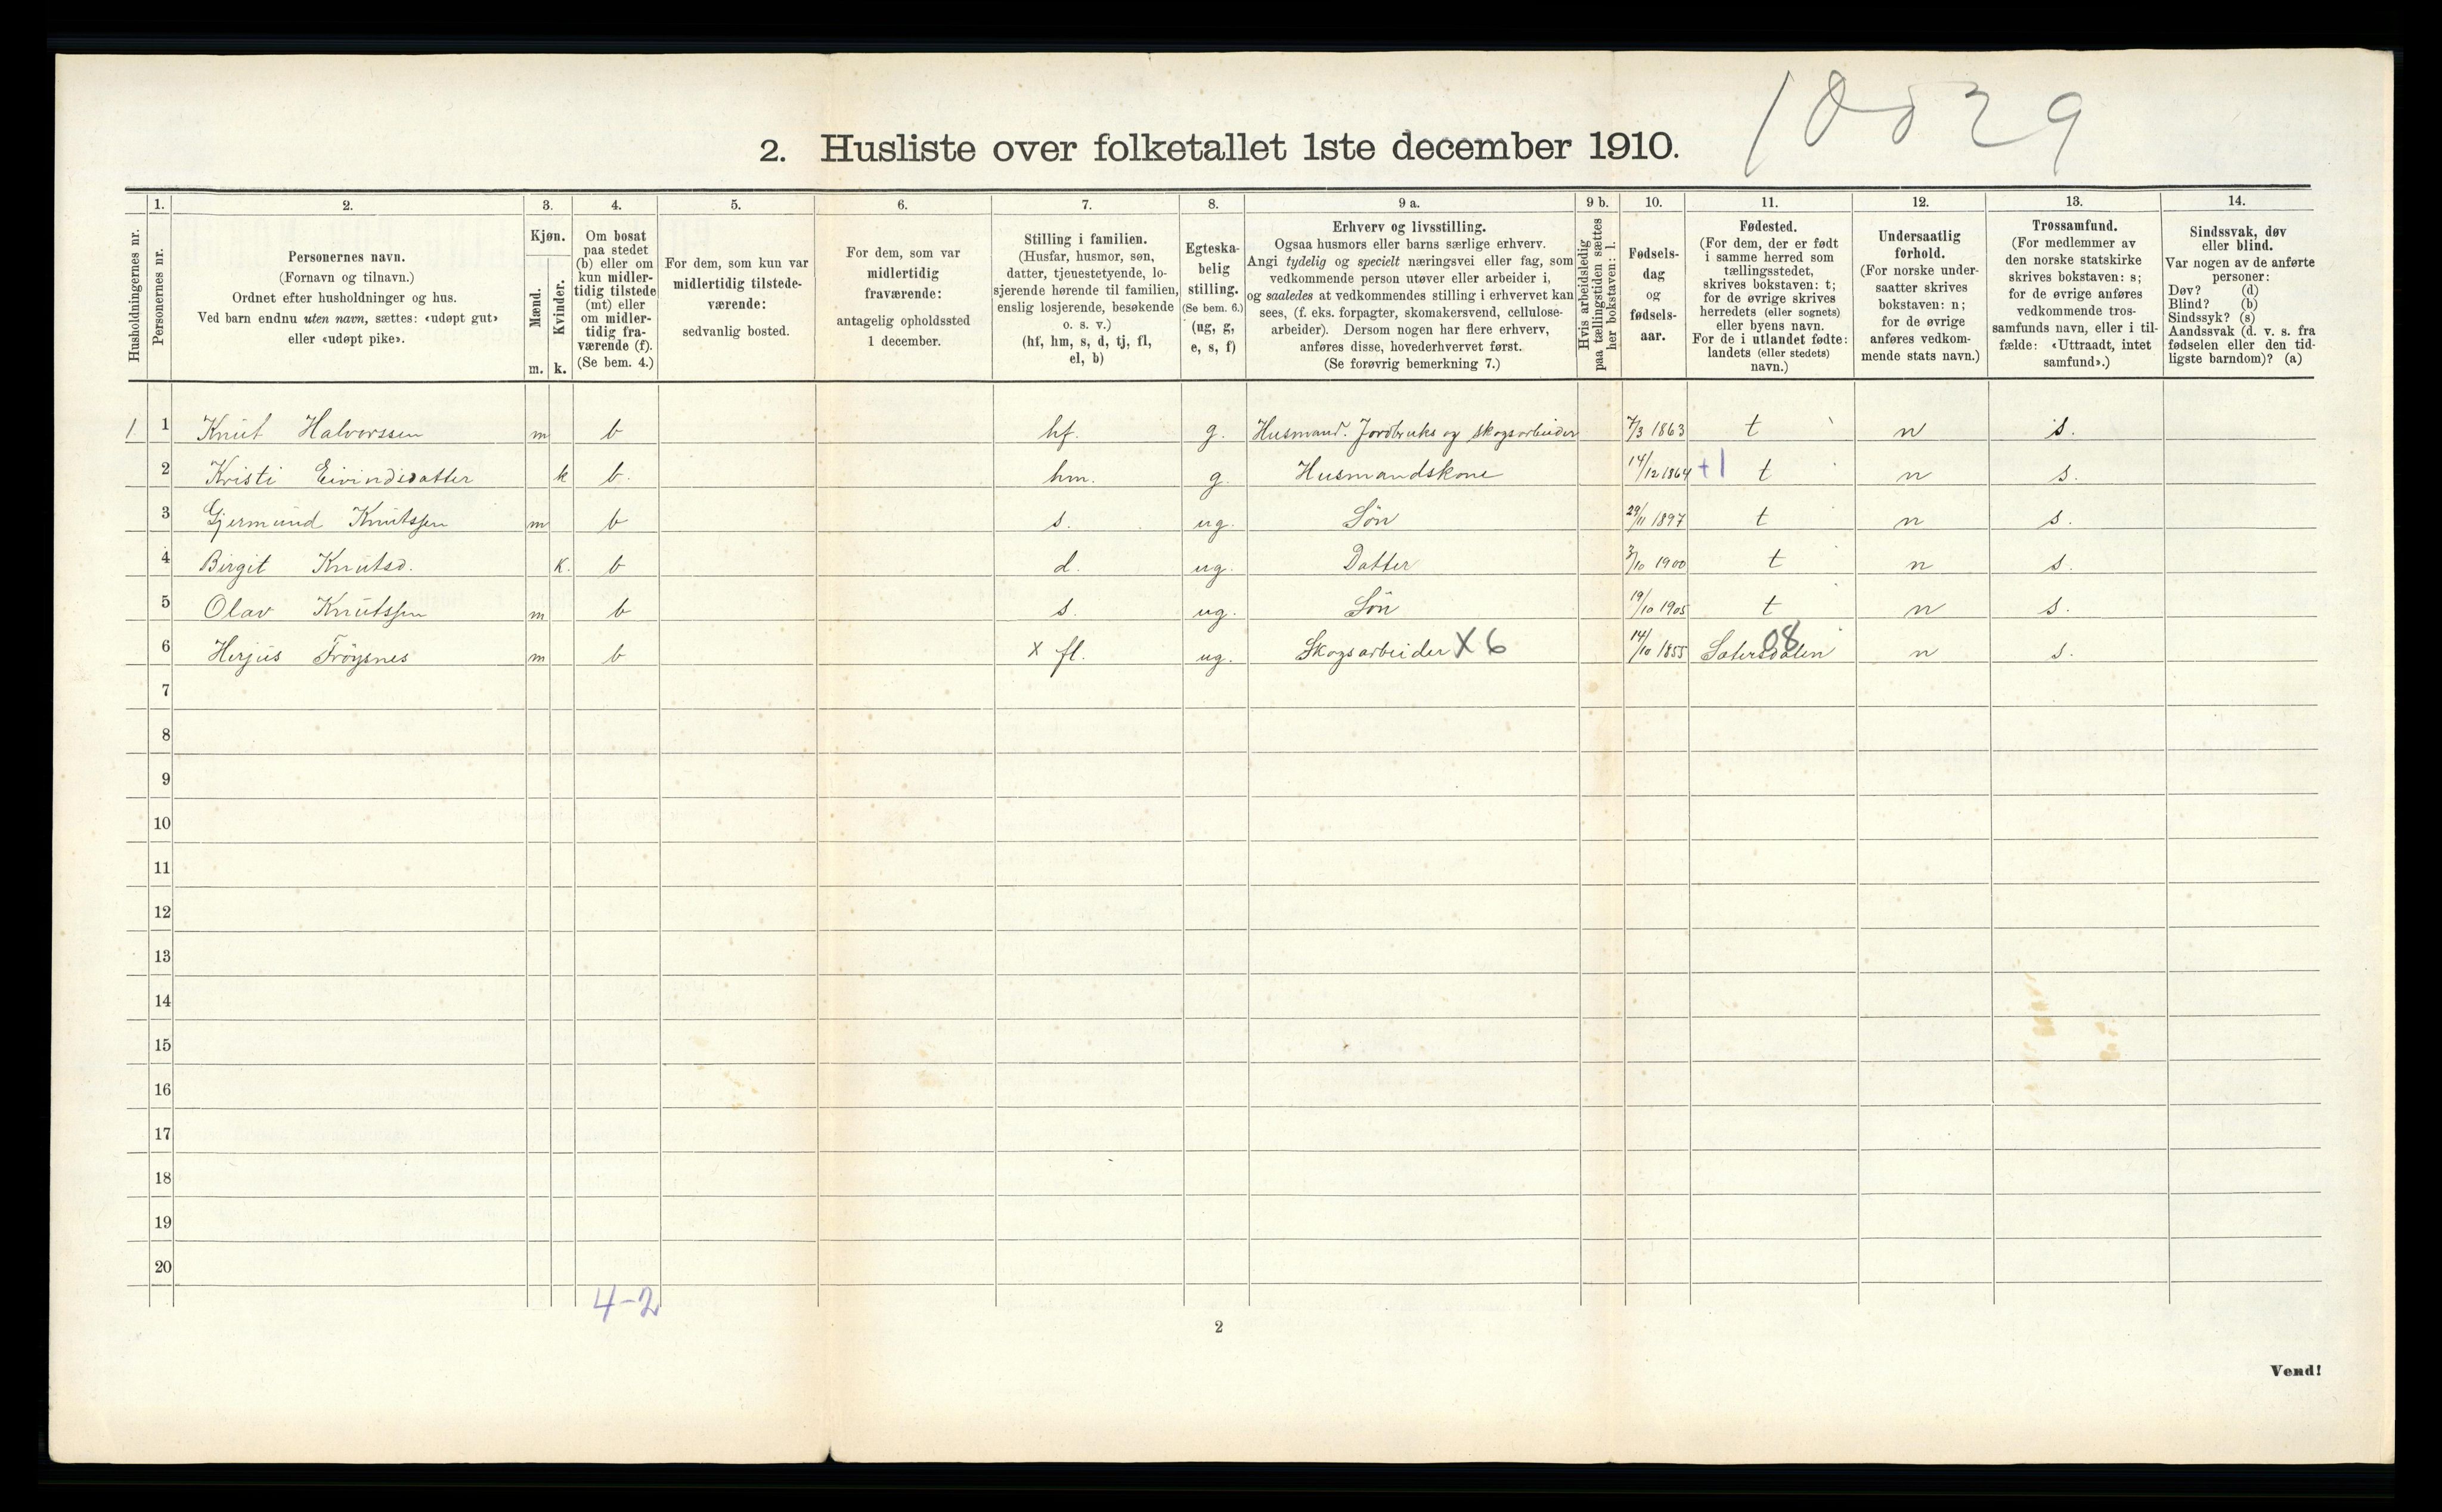 10039
2. Husliste over folketallet 1ste december 1910.
Husholdningernes nr.
1.
Personernes nr.
2.
Personernes navn.
(Fornavn og tilnavn.)
Ordnet efter husholdninger og hus.
Ved barn endnu uten navn, sættes: «udøpt gut»
eller «udøpt pike».
3.
Kjøn.
Mænd.
Kvinder.
m. k.
4.
Om bosat
paa stedet
(b) eller om
kun midler-
tidig tilstede
(mt) eller
om midler-
tidig fra-
værende (f).
(Se bem. 4.)
5.
For dem, som kun var
midlertidig tilstede-
værende:
sedvanlig bosted.
6.
For dem, som var
midlertidig
fraværende:
antagelig opholdssted
1 december.
7.
Stilling i familien.
(Husfar, husmor, søn,
datter, tjenestetyende, lo-
sjerende hørende til familien,
enslig losjerende, besøkende
o. s. v.)
(hf, hm, s, d, tj, fl,
el, b)
8.
Egteska-
belig
stilling.
(Se bem. 6.)
(ug, g,
e, s, f)
9 a.
Erhverv og livsstilling.
Ogsaa husmors eller barns særlige erhverv.
Angi tydelig og specielt næringsvei eller fag, som
vedkommende person utøver eller arbeider i,
og saaledes at vedkommendes stilling i erhvervet kan
sees, (f. eks. forpagter, skomakersvend, cellulose-
arbeider). Dersom nogen har flere erhverv,
anføres disse, hovederhvervet først.
(Se forøvrig bemerkning 7.)
9 b.
Hvis arbeidsledig
paa tællingstiden sættes
her bokstaven: l.
10.
Fødsels-
dag
og
fødsels-
aar.
11.
Fødested.
(For dem, der er født
i samme herred som
tællingsstedet,
skrives bokstaven: t;
for de øvrige skrives
herredets (eller sognets)
eller byens navn.
For de i utlandet fødte:
landets (eller stedets)
navn.)
12.
Undersaatlig
forhold.
(For norske under-
saatter skrives
bokstaven: n;
for de øvrige
anføres vedkom-
mende stats navn.)
13.
Trossamfund.
(For medlemmer av
den norske statskirke
skrives bokstaven: s;
for de øvrige anføres
vedkommende tros-
samfunds navn, eller i til-
fælde: «Uttraadt, intet
samfund».)
14.
Sindssvak, døv
eller blind.
Var nogen av de anførte
personer:
Døv? (d)
Blind? (b)
Sindssyk? (s)
Aandssvak (d. v. s. fra
fødselen eller den tid-
ligste barndom)? (a)
1 1 Knut Halvorssen m b hf. g. Husmand. Jordbruks og skogsarbeider 7/3 1863 t n s.
2 Kristi Eivindsdatter k b. hm. g. Husmandskone 14/12 1864 +1 t n s.
3 Gjermund Knutssen m b s. ug. Sön 29/11 1897 t n s.
4 Birgit Knutsd. k. b d. ug. Datter 3/10 1900 t n s.
5 Olav Knutssen m b s. ug. Sön 19/10 1905 t n s.
6 Herjus Fröysnes m b x fl. ug. Skogsarbeider X 6 14/10 1855 Sætersdalen 08 n s.
7
8
9
10
11
12
13
14
15
16
17
18
19
20
4-2
2
Vend!